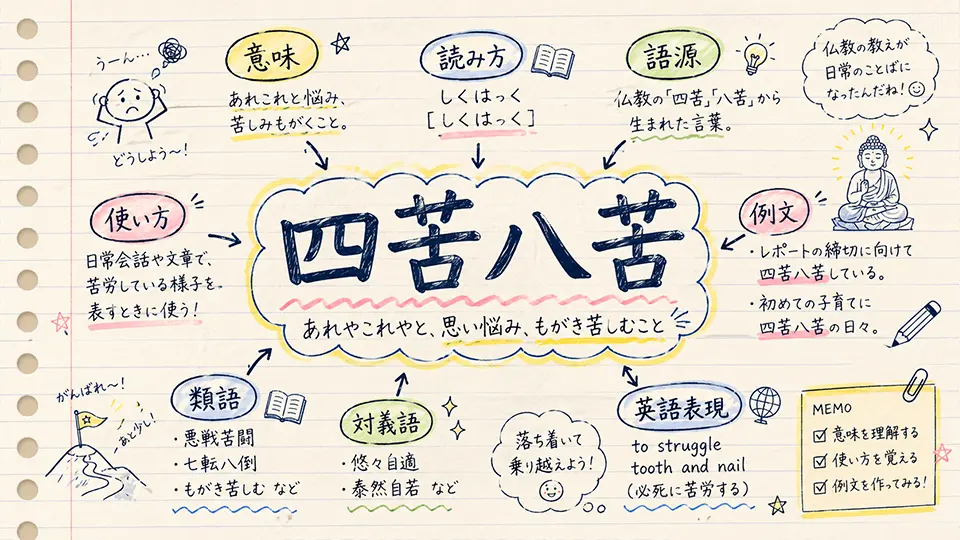 うーん…
どうしよう〜!
意味
あれこれと悩み、
苦しみもがくこと。
読み方
しくはっく
[しくはっく]
語源
仏教の「四苦」「八苦」から
生まれた言葉。
仏教の教えが
日常のことばに
なったんだね!
使い方
日常会話や文章で、
苦労している様子を
表すときに使う!
四苦八苦
あれやこれやと、思い悩み、もがき苦しむこと
例文
・レポートの締切に向けて
四苦八苦している。
・初めての子育てに
四苦八苦の日々。
がんばれ〜!
あと少し!
類語
・悪戦苦闘
・七転八倒
・もがき苦しむ など
対義語
・悠々自適
・泰然自若 など
落ち着いて
乗り越えよう!
英語表現
to struggle
tooth and nail
(必死に苦労する)
MEMO
意味を理解する
使い方を覚える
例文を作ってみる!